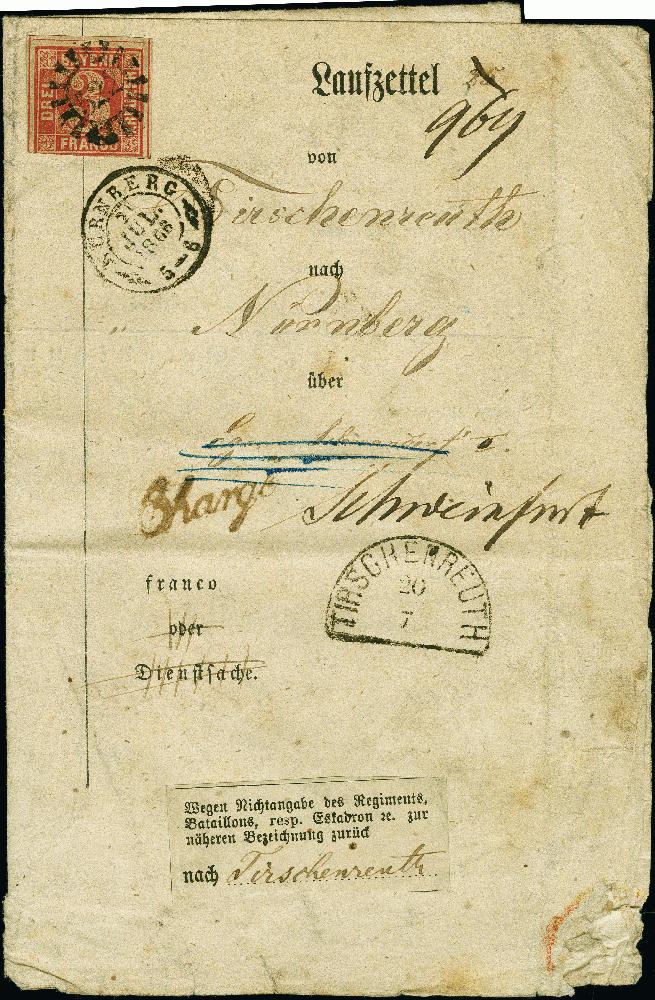 Laufzettel
969
von
Tirschenreuth
nach
Nürnberg
über
Chargé
Schweinfurt
franco
oder
Dienstsache.
BAYERN
DREI
FRANCO
NÜRNBERG
21
JUL.
1866
5-6
TIRSCHENREUTH
20
7
Wegen Nichtangabe des Regiments,
Bataillons, resp. Eskadron ꝛc. zur
näheren Bezeichnung zurück
nach Tirschenreuth